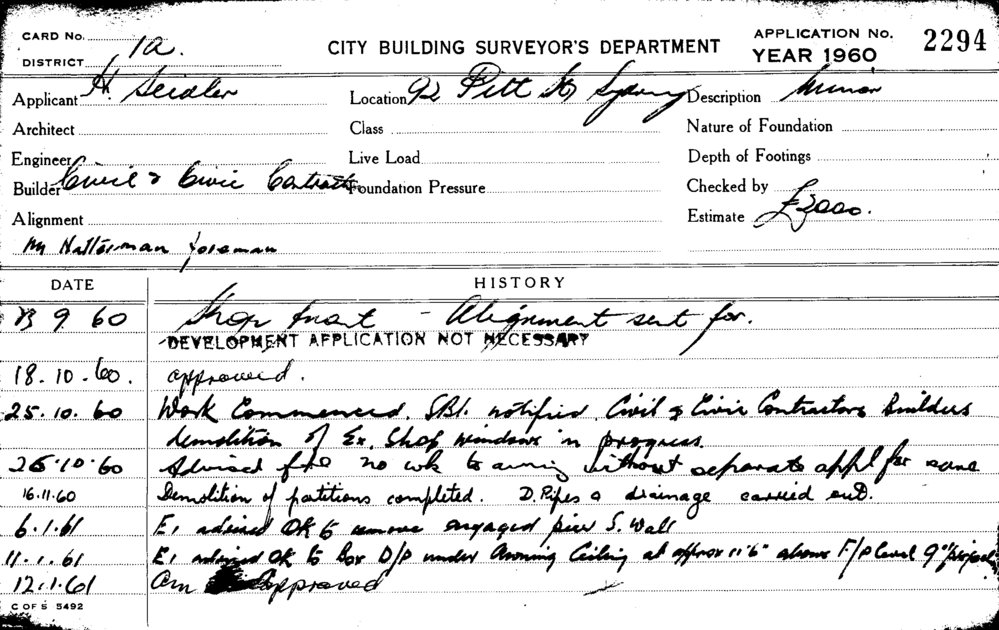 CARD No. 1a.
DISTRICT
CITY BUILDING SURVEYOR'S DEPARTMENT
APPLICATION No. 2294
YEAR 1960
Applicant H. Seidler
Location 92 Pitt St Sydney
Description Minor
Architect
Class
Nature of Foundation
Engineer
Live Load
Depth of Footings
Builder Civil & Civic Contractors
Foundation Pressure
Checked by
Alignment
Estimate £2000.
Mr Halterman foreman
DATE
HISTORY
13 9 60 Shop front - Alignment sent for.
DEVELOPMENT APPLICATION NOT NECESSARY
18.10.60. approved.
25.10.60 Work Commenced. SBI. notified. Civil & Civic Contractors Builders
demolition of Ex. Shop windows in progress.
26.10.60 Advised no wk to awning without separate appl for same
16.11.60 Demolition of partitions completed. D. Pipes & drainage carried out.
6.1.61 E, advised OK to remove engaged pier S. Wall
11.1.61 E, advised OK to box D/P under Awning Ceiling at approx 11'6" above F/P level 9"
12.1.61 Am approved
C OF S 5492